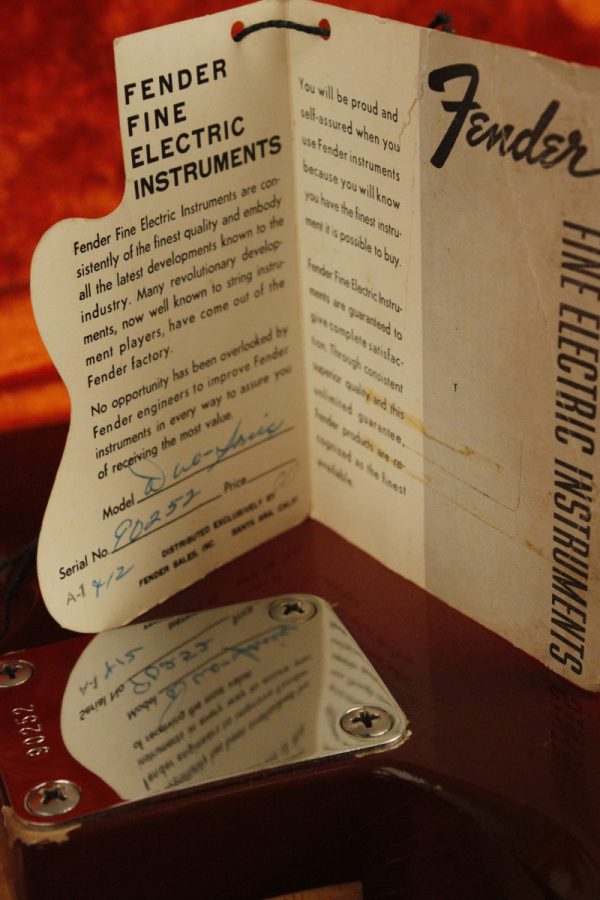 FENDER
FINE
ELECTRIC
INSTRUMENTS
Fender Fine Electric Instruments are con-
sistently of the finest quality and embody
all the latest developments known to the
industry. Many revolutionary develop-
ments, now well known to string instru-
ment players, have come out of the
Fender factory.
No opportunity has been overlooked by
Fender engineers to improve Fender
instruments in every way to assure you
of receiving the most value.
Model Duo-Sonic
Serial No. 90252 Price
A-1 412
DISTRIBUTED EXCLUSIVELY BY
FENDER SALES, INC. SANTA ANA, CALIF.
You will be proud and
self-assured when you
use Fender instruments
because you will know
you have the finest instru-
ment it is possible to buy.
Fender Fine Electric Instru-
ments are guaranteed to
give complete satisfac-
tion. Through consistent
superior quality and this
unlimited guarantee,
Fender products are re-
cognized as the finest
available.
Fender
FINE ELECTRIC INSTRUMENTS
90252